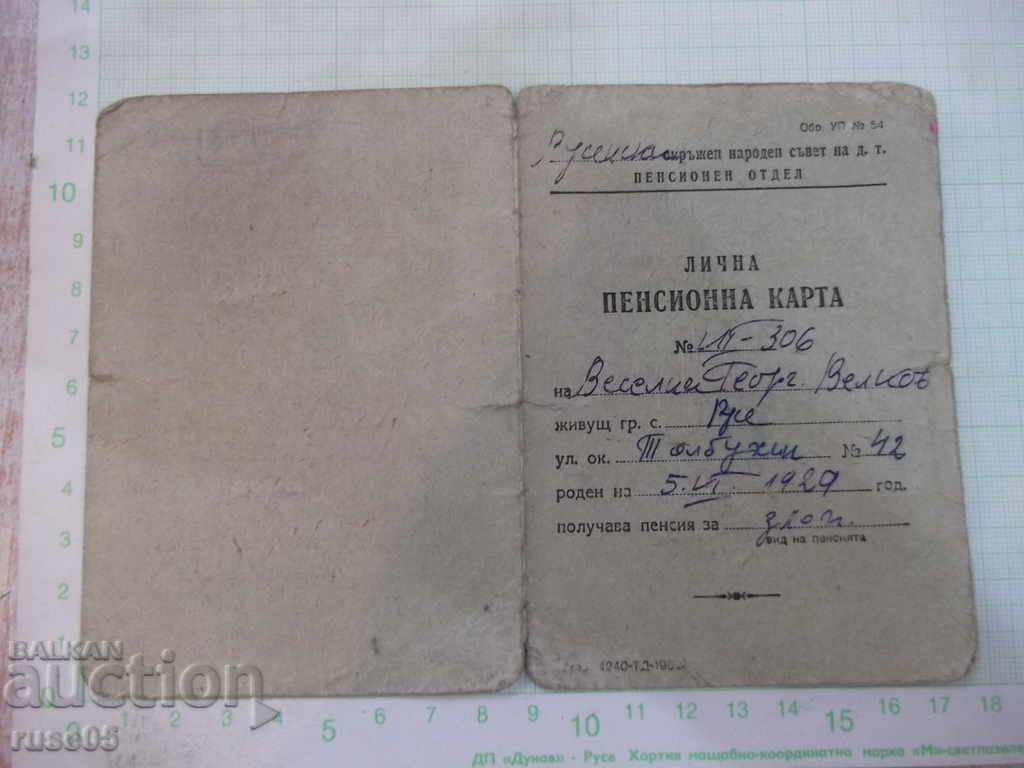 Обр. УП № 54
Русенски окръжен народен съвет на д. т.
ПЕНСИОНЕН ОТДЕЛ
ЛИЧНА
ПЕНСИОННА КАРТА
№ -306
на Веселин Георг. Велков
живущ гр. с. Русе
ул. ок. Толбухин № 42
роден на 5.VI. 1929 год.
получава пенсия за злоп.
вид на пенсията
4240-ТД-196
BALKAN
auction
ruse05
14
13
12
11
10
9
8
7
6
5
4
3
2
1
0
0 1 2 3 4 5 6 7 8 9 10 11 12 13 14 15 16 17 18
ДП «Дунав» - Русе Хартия мащабно-координатна марка «Мн-светлозелен